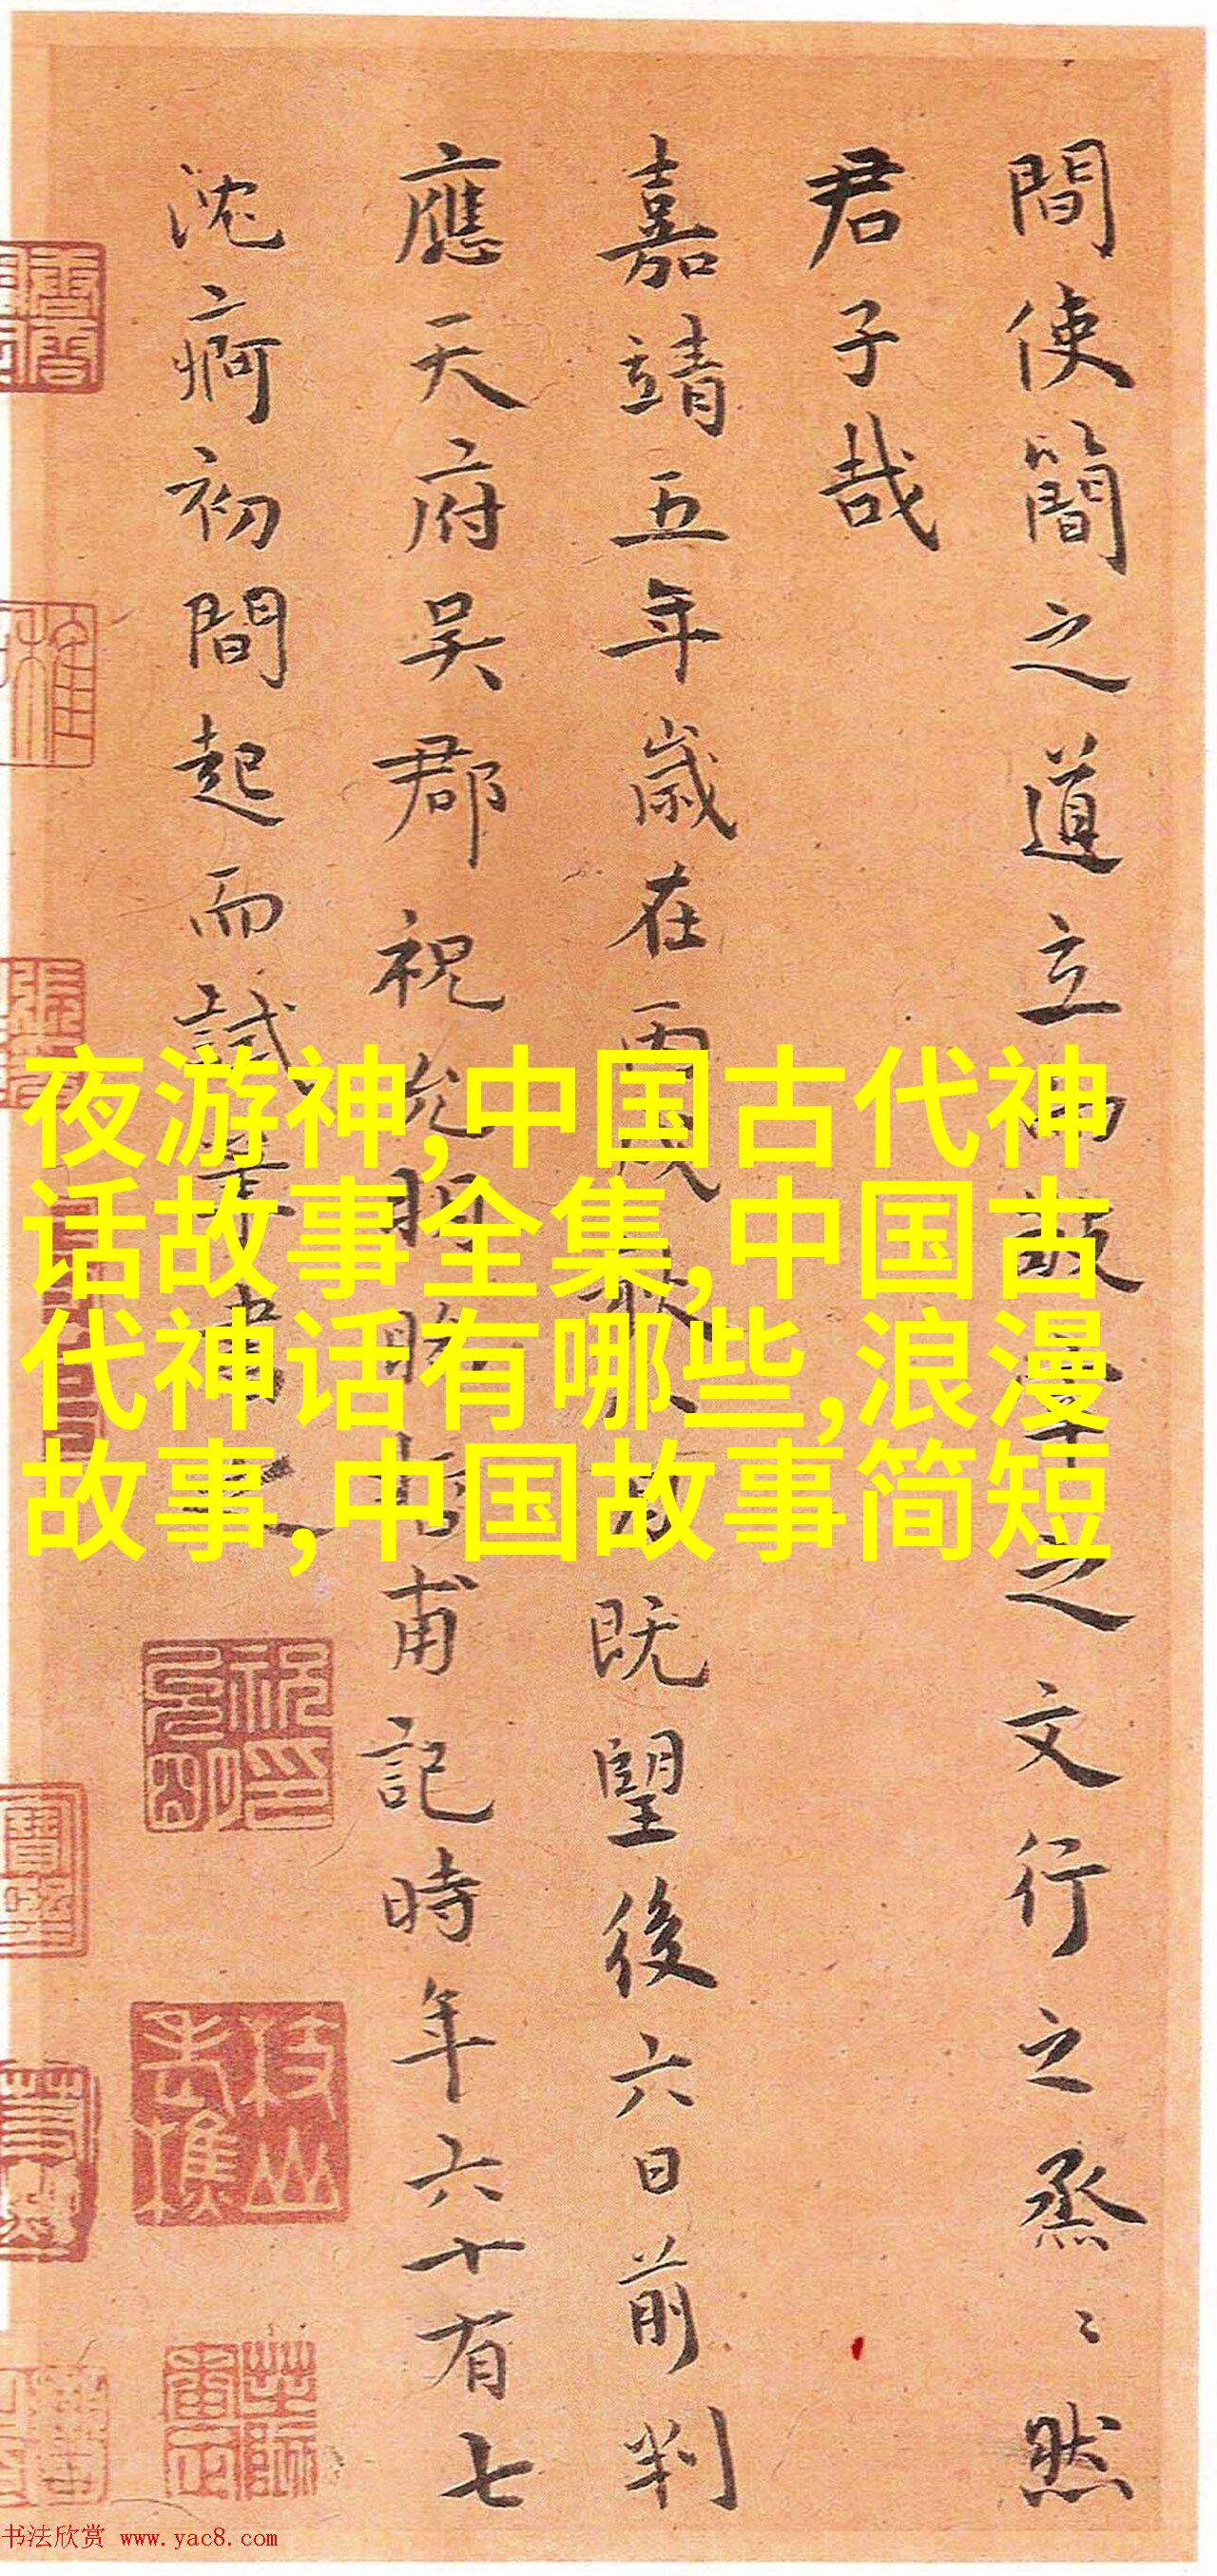 間使簡之道立而敬字之文行之烝〻然
君子哉
嘉靖五年歲在丙戌秋八月既望後六日前判
應天府吳郡祝允明晞哲甫記時年六十有七
沈痾初間起而試筆書之
夜游神,中国古代神
话故事全集,中国古
代神话有哪些,浪漫
故事,中国故事简短
枝山老樵
书法欣赏 www.yac8.com